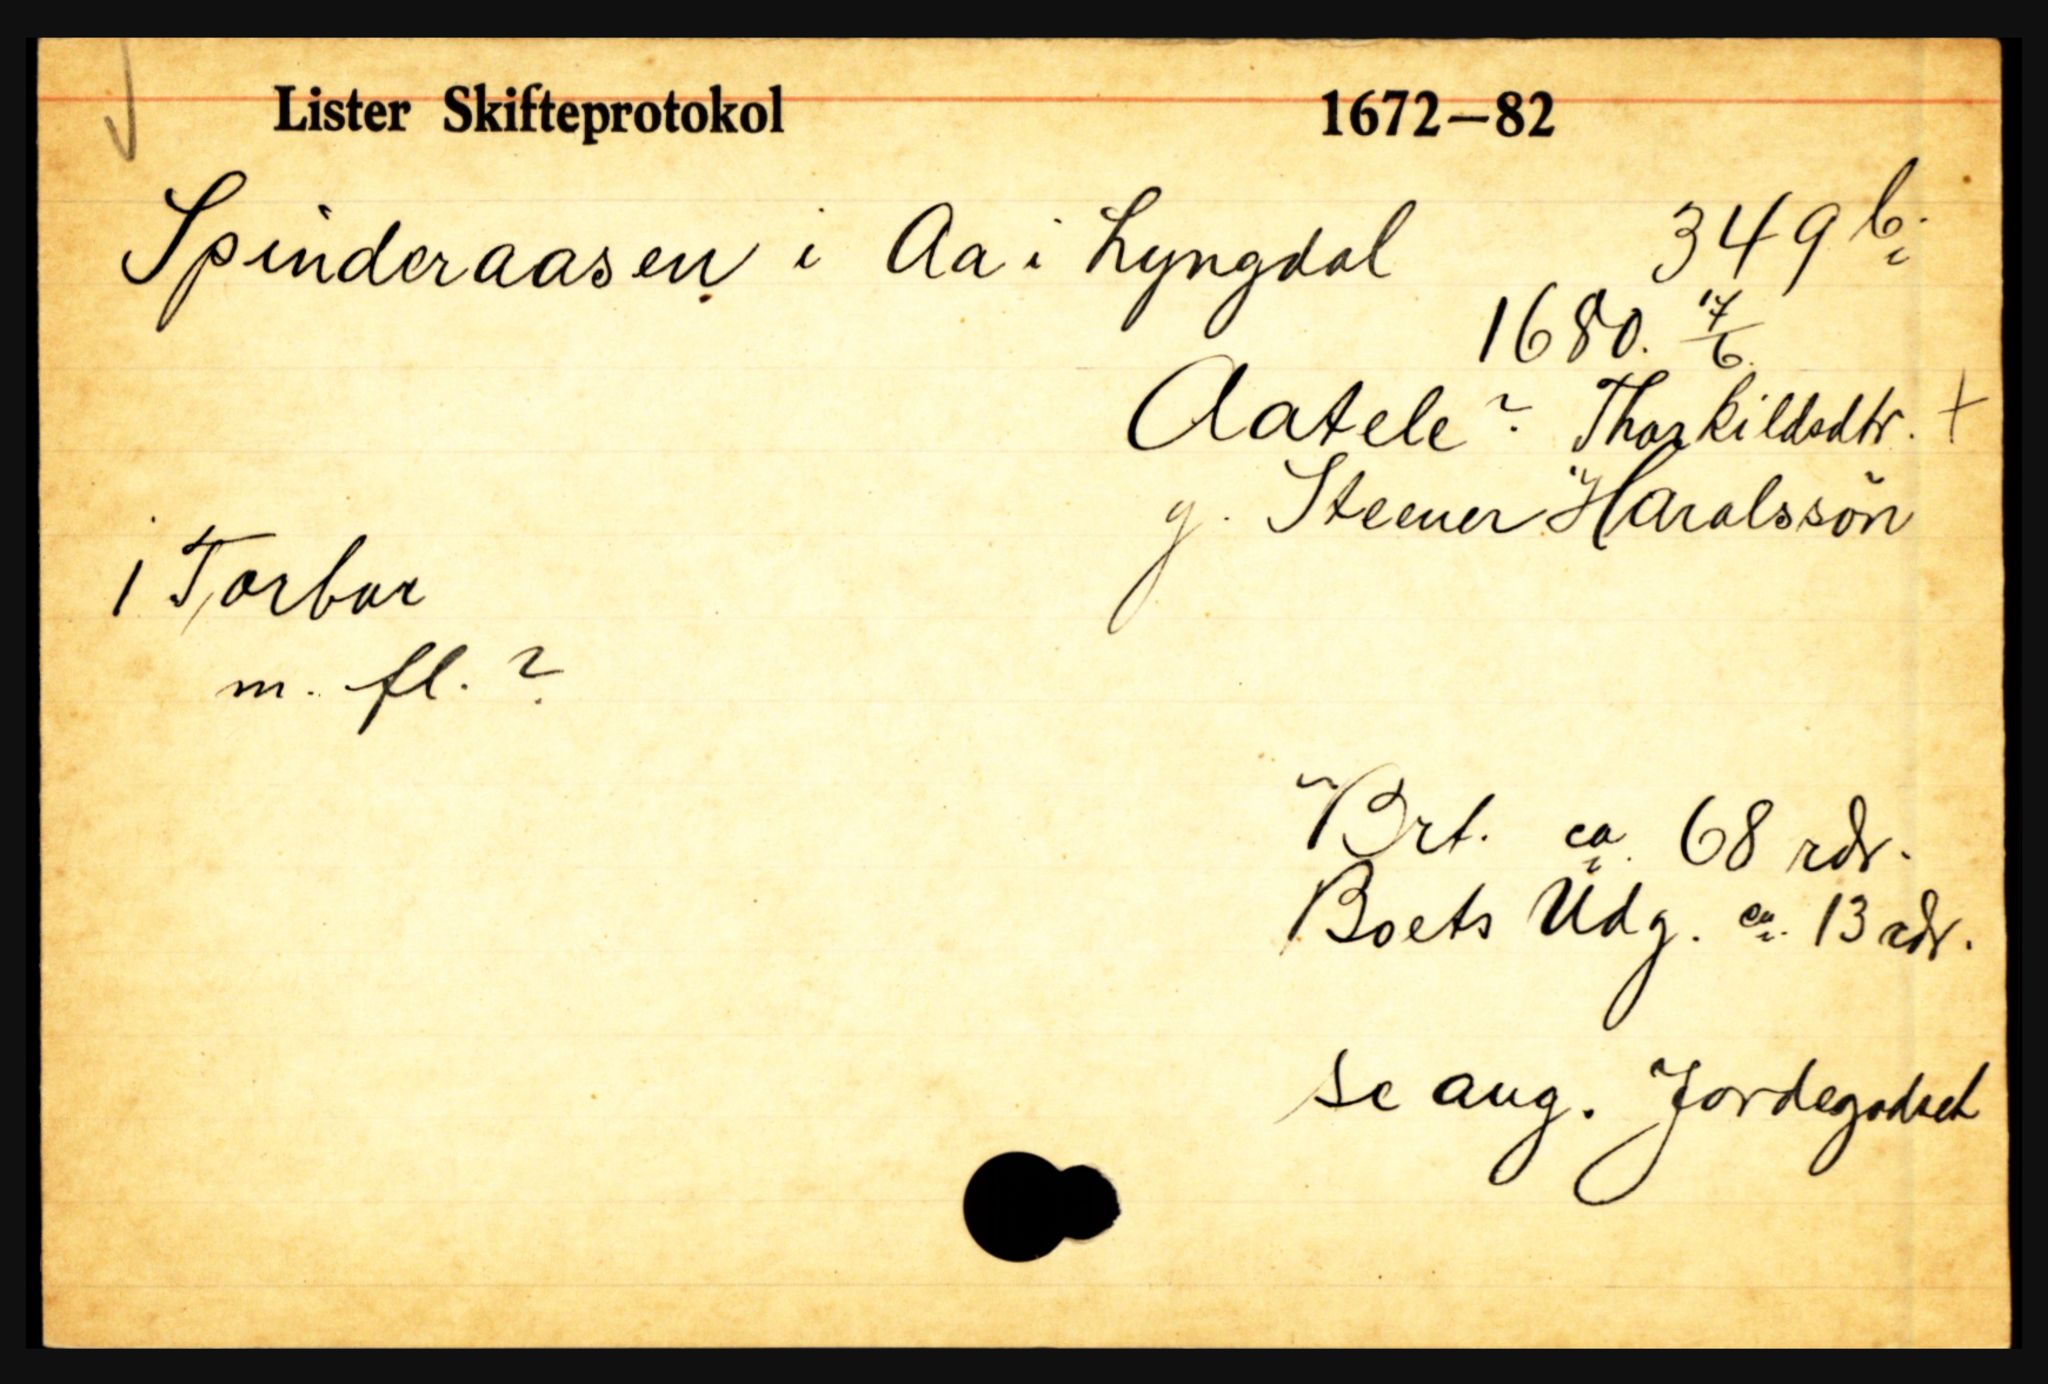 Lister Skifteprotokol 1672–82
Spinderaasen i Aa i Lyngdal 349 b.
1680. 17/6.
Aatele? Thorkildsdtr. +
g. Steener Haralssön
1 Torbor
m. fl.?
Brt. ca. 68 rdr.
Boets Udg. ca. 13 rdr.
se ang. Jordegodset